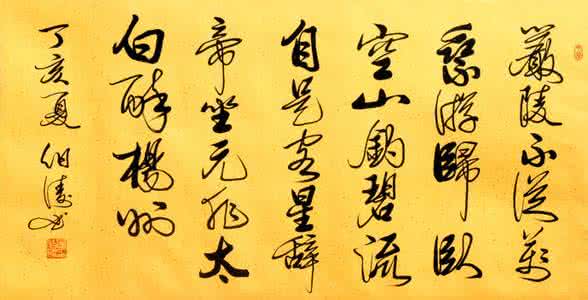 嚴陵不從萬
乘游歸臥
空山釣碧流
自是客星辭
帝坐元非太
白醉楊州
丁亥夏伯濤书